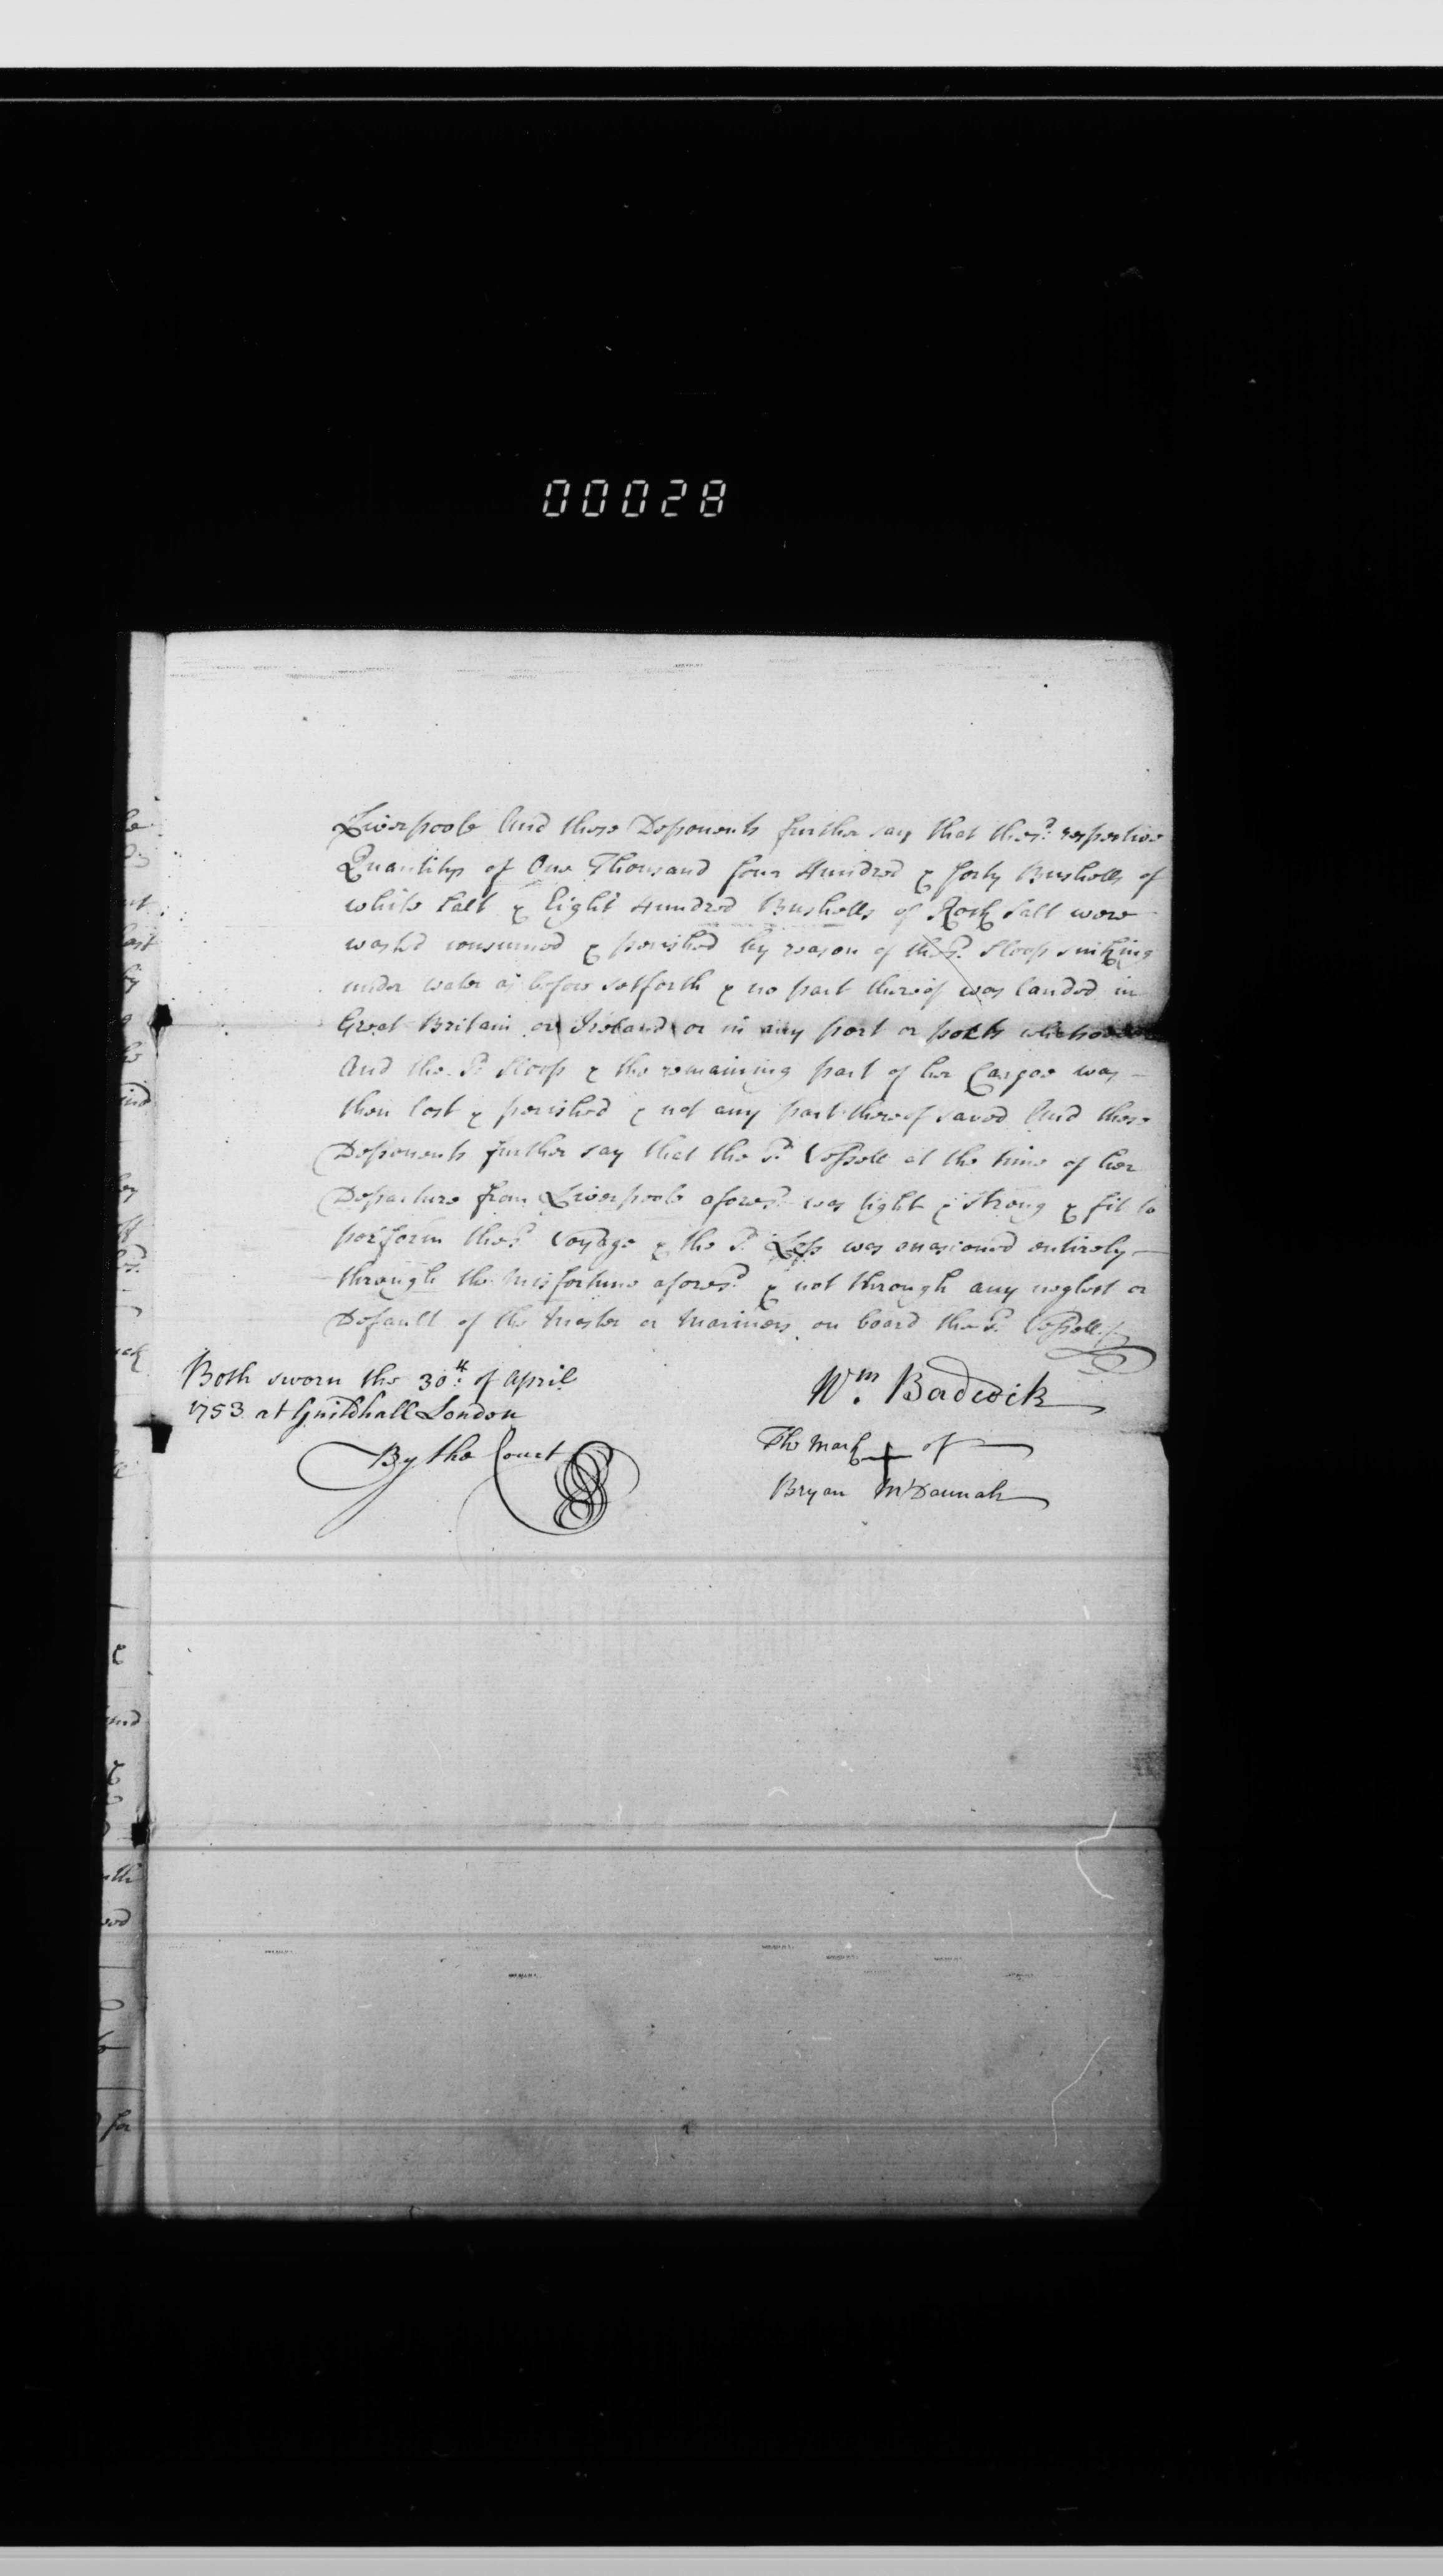 00028
Liverpoole And these Deponents further say that the sd. respective
Quantitys of One Thousand four Hundred & forty Bushells of
white Salt & Eight Hundred Bushells of Rock Salt were
washd consumed & perished by reason of the sd. Sloop sinking
under water as before setforth & no part thereof was landed in
Great Britain or Ireland or in any port or ports
And the sd. Sloop & the remaining part of her Cargoe was
then lost & perished & not any part thereof saved And these
Deponents further say that the sd. Vessell at the time of her
Departure from Liverpoole aforesd. was tight & strong & fit to
perform the sd. Voyage & the sd. Loss was occasioned entirely
through the misfortune aforesd. & not through any neglect or
Default of the Master or Mariners on board the sd. Vessell
Both sworn the 30th. of April
1753 at Guildhall London
By the Court
Wm. Badcock
The Mark + of
Bryan McDannah